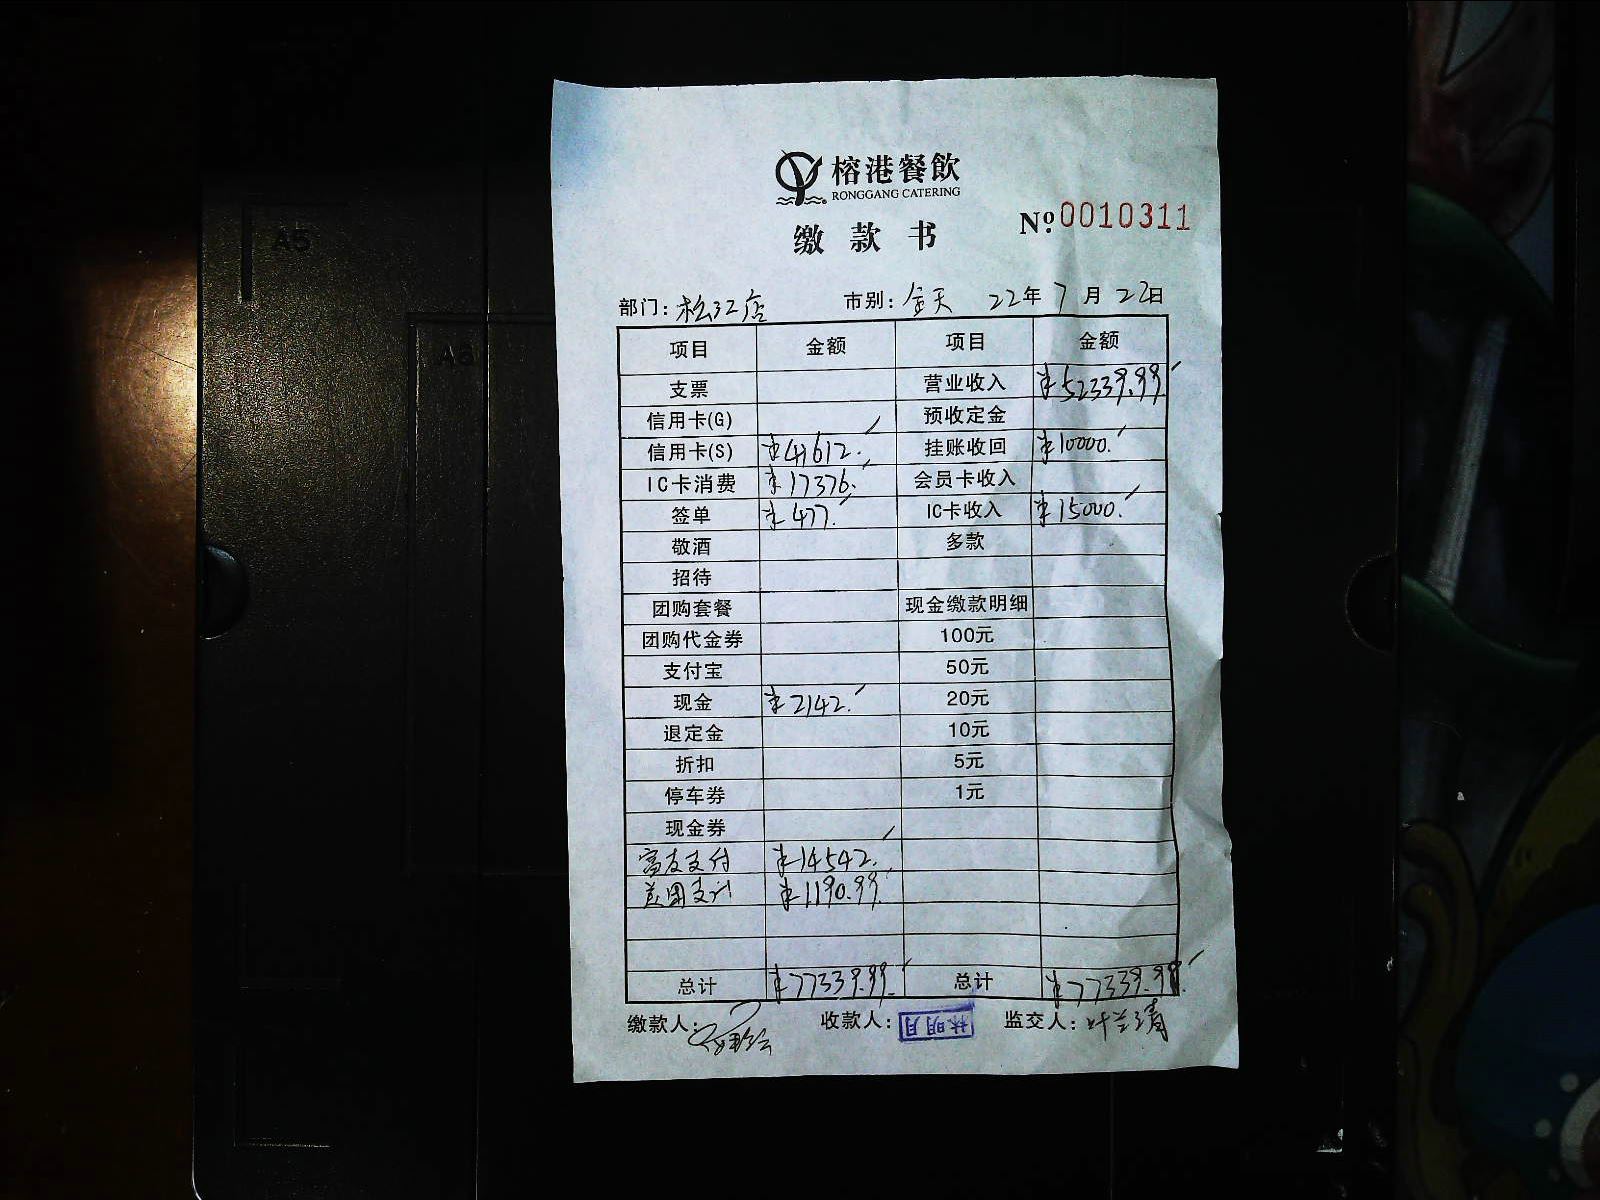 榕港餐飲
RONGGANG CATERING
缴款书 №0010311
部门: 松江店 市别: 全天 22年7月22日
项目 金额 项目 金额
支票 营业收入 ¥52339.99
信用卡(G) 预收定金
信用卡(S) ¥41612. 挂账收回 ¥10000.
IC卡消费 ¥17376. 会员卡收入
签单 ¥477. IC卡收入 ¥15000.
敬酒 多款
招待
团购套餐 现金缴款明细
团购代金券 100元
支付宝 50元
现金 ¥2142. 20元
退定金 10元
折扣 5元
停车券 1元
现金券
富友支付 ¥14542.
美团支付 ¥1190.99
总计 ¥77339.99 总计 ¥77339.99
缴款人: 收款人: 林明月 监交人: 叶兰青
A5
A6